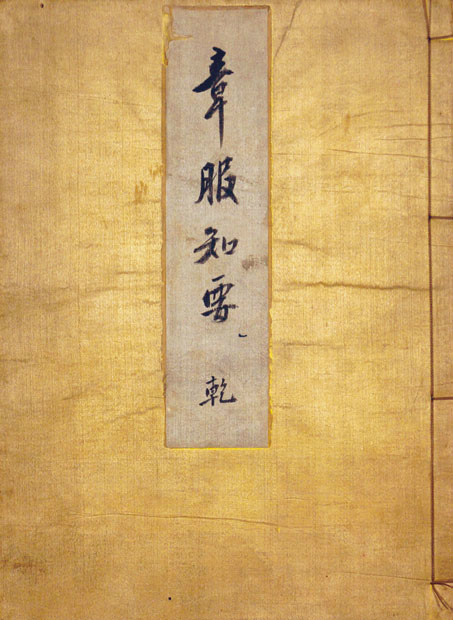 章服知要
乾